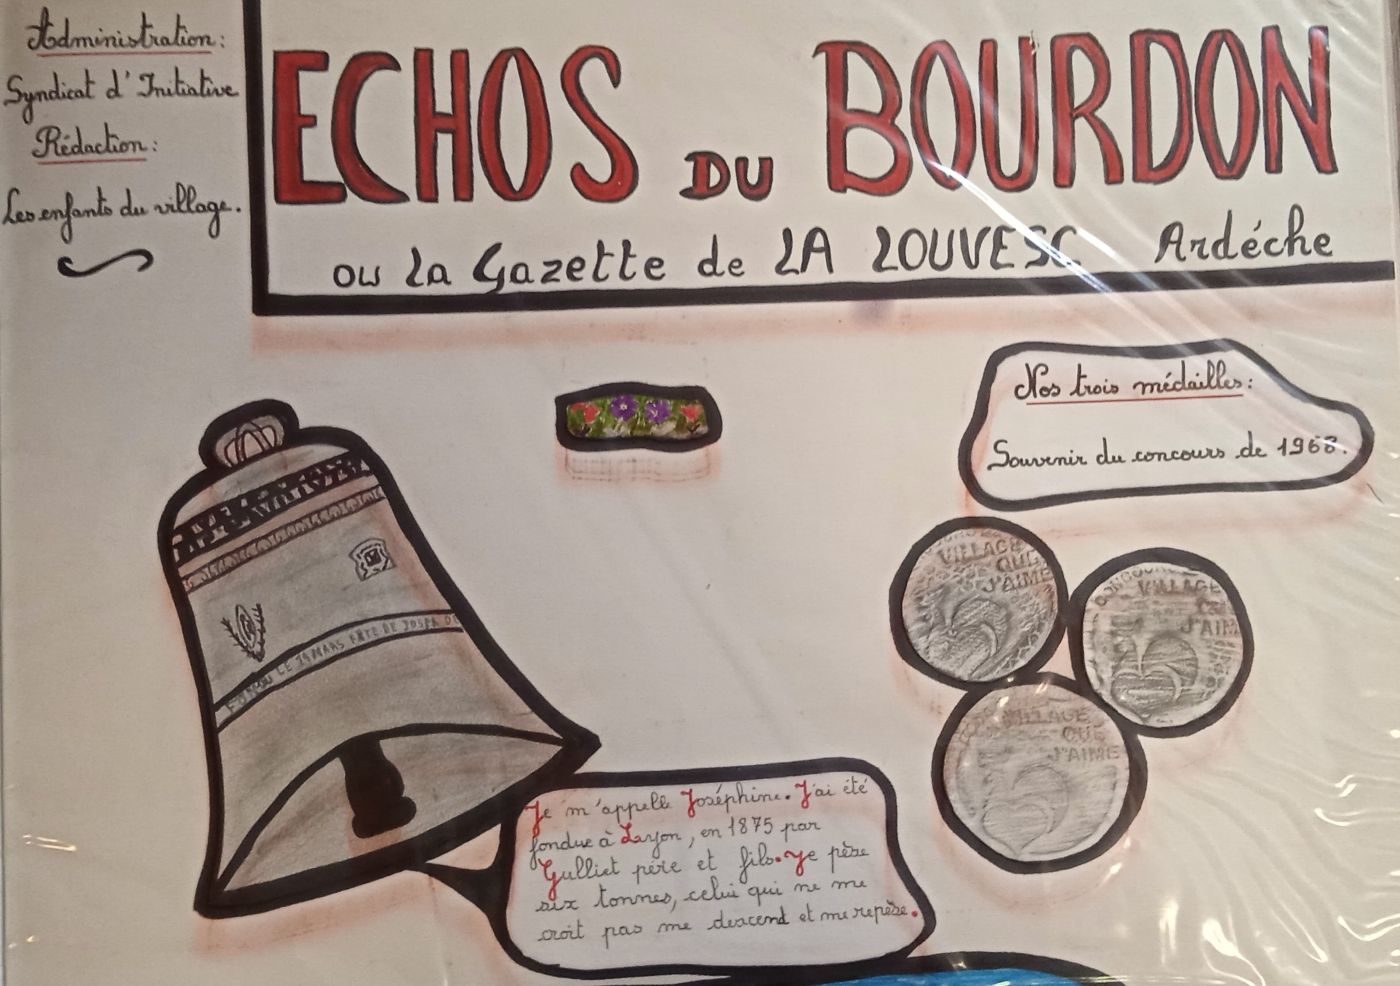 Administration:
Syndicat d'Initiative
Rédaction:
Les enfants du village.
ECHOS DU BOURDON
ou La Gazette de LA LOUVESC Ardéche
Nos trois médailles:
Souvenir du concours de 1968.
VILLAGE
QUE
J'AIME
CONCOURS
VILLAGE
J'AIM
VILLAGE
QUE
J'AIME
LE 19 MARS FÊTE DE
Je m'appelle Joséphine. J'ai été
fondue à Lyon, en 1875 par
Gulliet père et fils. Je pèse
six tonnes, celui qui ne me
croit pas me descend et me repèse.